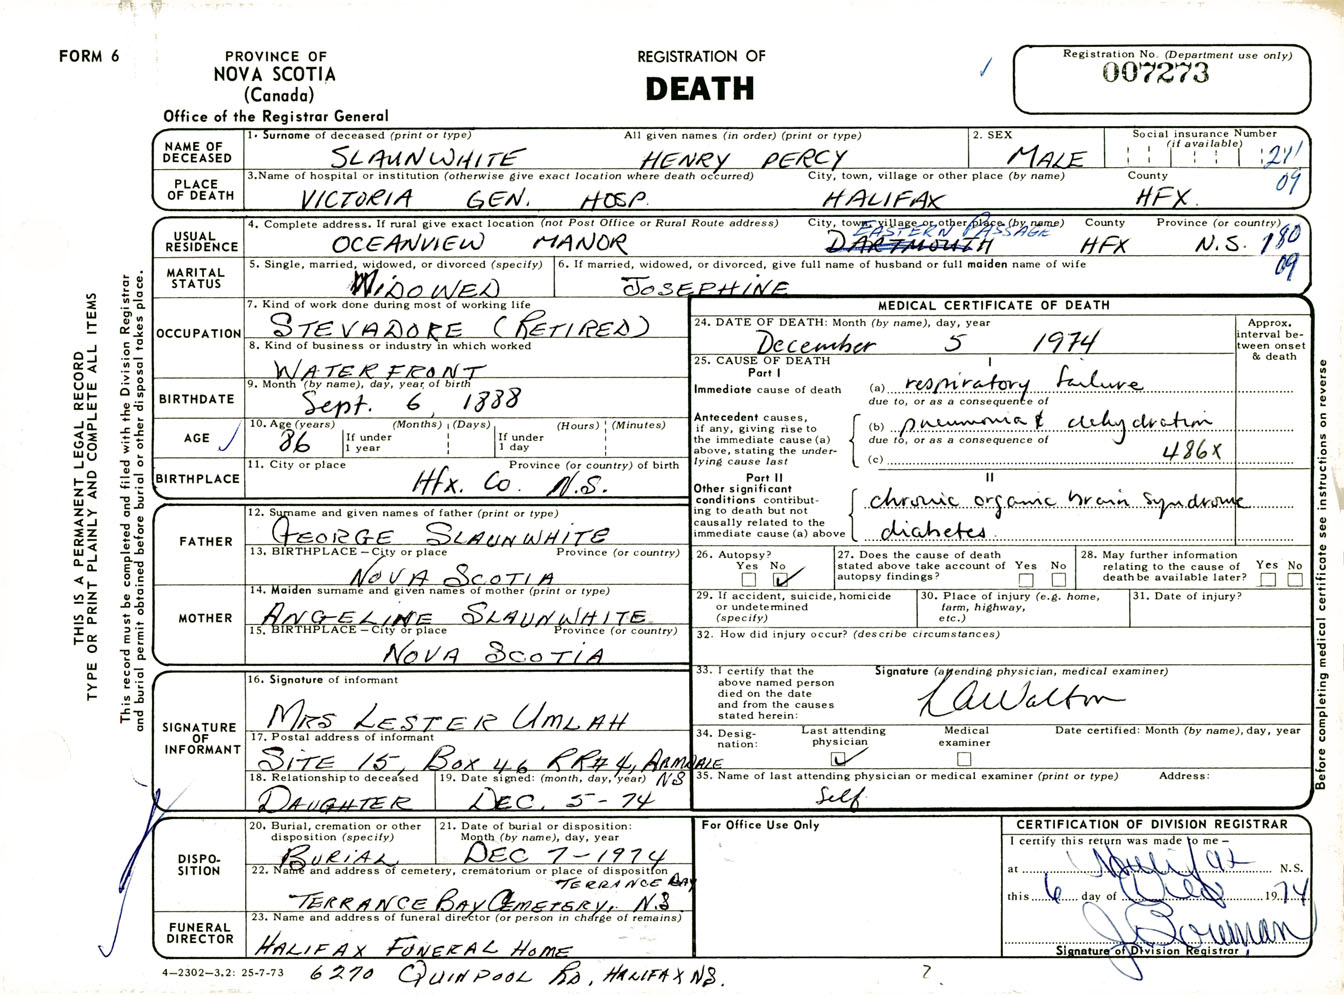 FORM 6
PROVINCE OF
NOVA SCOTIA
(Canada)
Office of the Registrar General
REGISTRATION OF
DEATH
Registration No. (Department use only)
007273
THIS IS A PERMANENT LEGAL RECORD
TYPE OR PRINT PLAINLY AND COMPLETE ALL ITEMS
This record must be completed and filed with the Division Registrar
and burial permit obtained before burial or other disposal takes place.
NAME OF
DECEASED
1. Surname of deceased (print or type) All given names (in order) (print or type)
SLAUNWHITE HENRY PERCY
2. SEX
MALE
Social insurance Number
(if available)
211
PLACE
OF DEATH
3. Name of hospital or institution (otherwise give exact location where death occurred) City, town, village or other place (by name) County
VICTORIA GEN. HOSP. HALIFAX HFX.
09
USUAL
RESIDENCE
4. Complete address. If rural give exact location (not Post Office or Rural Route address) City, town, village or other place (by name) County Province (or country)
EASTERN PASSAGE
OCEANVIEW MANOR DARTMOUTH HFX N.S. 180
09
MARITAL
STATUS
5. Single, married, widowed, or divorced (specify)
WIDOWED
6. If married, widowed, or divorced, give full name of husband or full maiden name of wife
JOSEPHINE
OCCUPATION
7. Kind of work done during most of working life
STEVADORE (RETIRED)
8. Kind of business or industry in which worked
WATERFRONT
BIRTHDATE
9. Month (by name), day, year of birth
Sept. 6, 1888
AGE
10. Age (years) (Months) (Days) (Hours) (Minutes)
86 If under
1 year
If under
1 day
BIRTHPLACE
11. City or place Province (or country) of birth
Hfx. Co. N.S.
FATHER
12. Surname and given names of father (print or type)
GEORGE SLAUNWHITE
13. BIRTHPLACE – City or place Province (or country)
NOVA SCOTIA
MOTHER
14. Maiden surname and given names of mother (print or type)
ANGELINE SLAUNWHITE
15. BIRTHPLACE – City or place Province (or country)
NOVA SCOTIA
SIGNATURE
OF
INFORMANT
16. Signature of informant
MRS LESTER UMLAH
17. Postal address of informant
SITE 15, BOX 46 RR#4, ARMDALE
NS
18. Relationship to deceased
DAUGHTER
19. Date signed: (month, day, year)
DEC. 5-74
DISPO-
SITION
20. Burial, cremation or other
disposition (specify)
BURIAL
21. Date of burial or disposition:
Month (by name), day, year
DEC 7-1974
22. Name and address of cemetery, crematorium or place of disposition
TERRANCE BAY
TERRANCE BAY CEMETERY, N.S
FUNERAL
DIRECTOR
23. Name and address of funeral director (or person in charge of remains)
HALIFAX FUNERAL HOME
6270 QUINPOOL RD, HALIFAX NS.
4–2302–3.2: 25-7-73
MEDICAL CERTIFICATE OF DEATH
24. DATE OF DEATH: Month (by name), day, year
December 5 1974
Approx.
interval be-
tween onset
& death
25. CAUSE OF DEATH
Part I
I
Immediate cause of death (a) respiratory failure
due to, or as a consequence of
Antecedent causes,
if any, giving rise to
the immediate cause (a)
above, stating the under-
lying cause last
(b) pneumonia & dehydration
due to, or as a consequence of
(c) 486X
Part II
II
Other significant
conditions contribut-
ing to death but not
causally related to the
immediate cause (a) above
chronic organic brain syndrome
diabetes.
26. Autopsy?
Yes No
27. Does the cause of death
stated above take account of
autopsy findings?
Yes No
28. May further information
relating to the cause of
death be available later?
Yes No
29. If accident, suicide, homicide
or undetermined
(specify)
30. Place of injury (e.g. home,
farm, highway,
etc.)
31. Date of injury?
32. How did injury occur? (describe circumstances)
33. I certify that the
above named person
died on the date
and from the causes
stated herein:
Signature (attending physician, medical examiner)
34. Desig-
nation:
Last attending
physician
Medical
examiner
Date certified: Month (by name), day, year
35. Name of last attending physician or medical examiner (print or type) Address:
Self
For Office Use Only
7
CERTIFICATION OF DIVISION REGISTRAR
I certify this return was made to me –
at Halifax N.S.
this 6 day of Dec 1974
Signature of Division Registrar
Before completing medical certificate see instructions on reverse